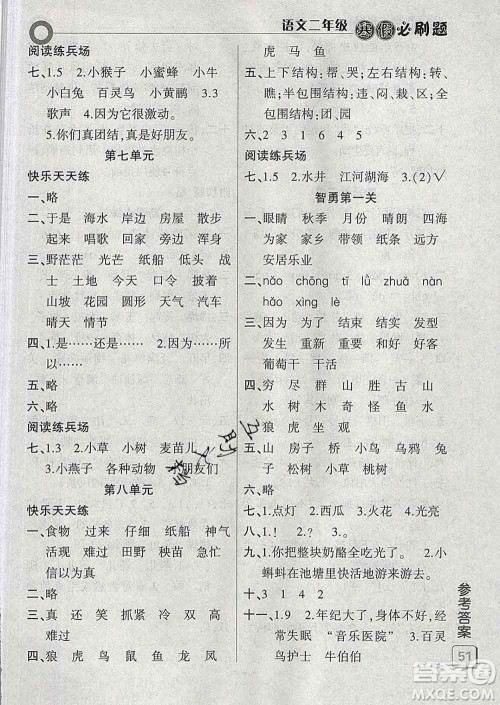 语文二年级 寒假必刷题
阅读练兵场
七、1.5 2.小猴子 小蜜蜂 小牛
小白兔 百灵鸟 小黄鹂 3.3
歌声 4.因为它很激动。
5.你们真团结,真是好朋友。
第七单元
快乐天天练
一、略
二、于是 海水 岸边 房屋 散步
起来 唱歌 回家 久久 船只
三、野茫茫 光亮 纸船 低头 战
士 土地 今天 口令 护送
山坡 花园 图形 汽车 有时
晴天 情节
四、1.是……还是…… 2.因为……所
以……
五、略
六、略
阅读练兵场
七、1.3 2.小草 小树 麦苗儿
3.小燕子 各种动物 小朋友们
第八单元
快乐天天练
一、食物 过来 仔细 纸船 神气
活现 难过 田野 筝 急忙
信以为真
二、略
三、真 还 笑 抓紧 冷 双 高
难过
四、狼 虎 马 鼠 鱼 龙 凤
虎 马 鱼
五、上下结构:帮、哭; 左右结构:但、
破; 半包围结构:违、闷、栽、区; 全
包围结构:团、园
六、2 3 1 6 4 5
阅读练兵场
七、1.5 2.水井 江河湖海 3.(2)√
智勇第一关
一、眼睛 秋季 月份 晴朗 四海
为家 家乡 带领 纸船 传统
安居乐业
二、nǎo chōng tī lǜ zhuǎ nàn
hǎo xìng lè
三、因为 为了 结束 结实 发型
发生 重新 重要 勇敢 果然
萌芽 干活
四、穷 尽 群 山 胜 古 山
水 树 木 奇 怪 鱼 鱼
狼 虎 虎 龙 凤
五、山 房子 桥 小鸟 乌鸦 兔子
桌子 毛巾 叶子 花 布
六、略
七、1.略 2.西瓜 3.火光 4.光亮
八、1.○ 2.× 3.× 4.○
九、1.他们把整块奶酪全吃光了。 2.小
蝌蚪在池塘里快活地游来游去。
十、3 1 4 2
十一、1.9 2.年纪大了,身体不好,经
常失眠 “音乐医院” 3.百灵
鸟护士 牛伯伯
参考答案
51
答案圈
MXQE.COM